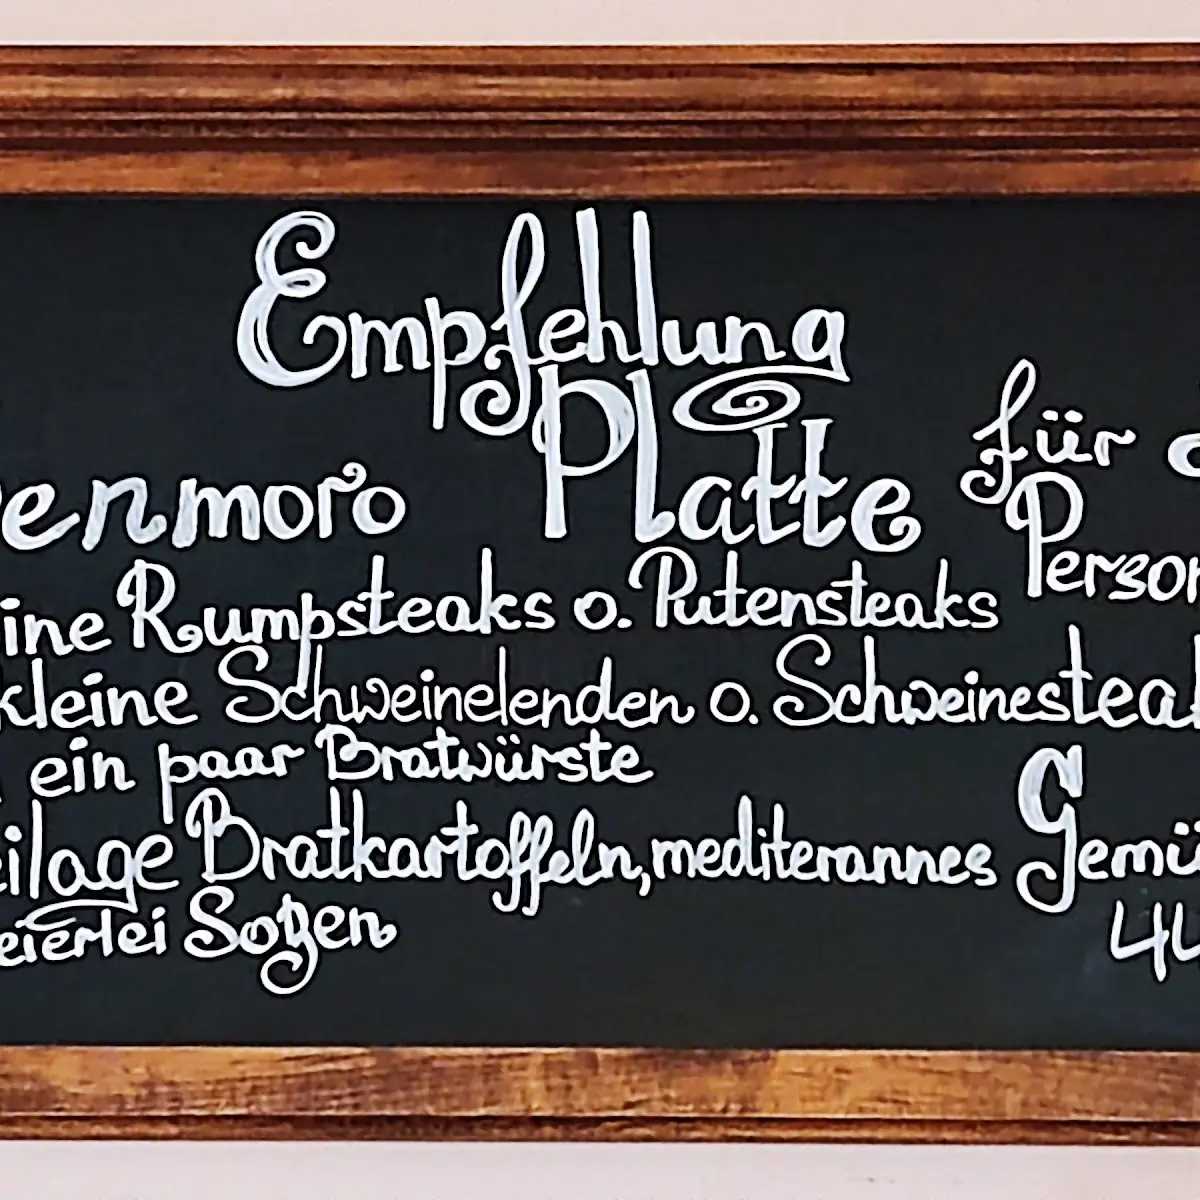 Empfehlung
Platte für
enmoro Person
ine Rumpsteaks o. Putensteaks
kleine Schweinelenden o. Schweinesteak
ein paar Bratwürste
eilage Bratkartoffeln, mediterannes Gemü
eierlei Soßen 44